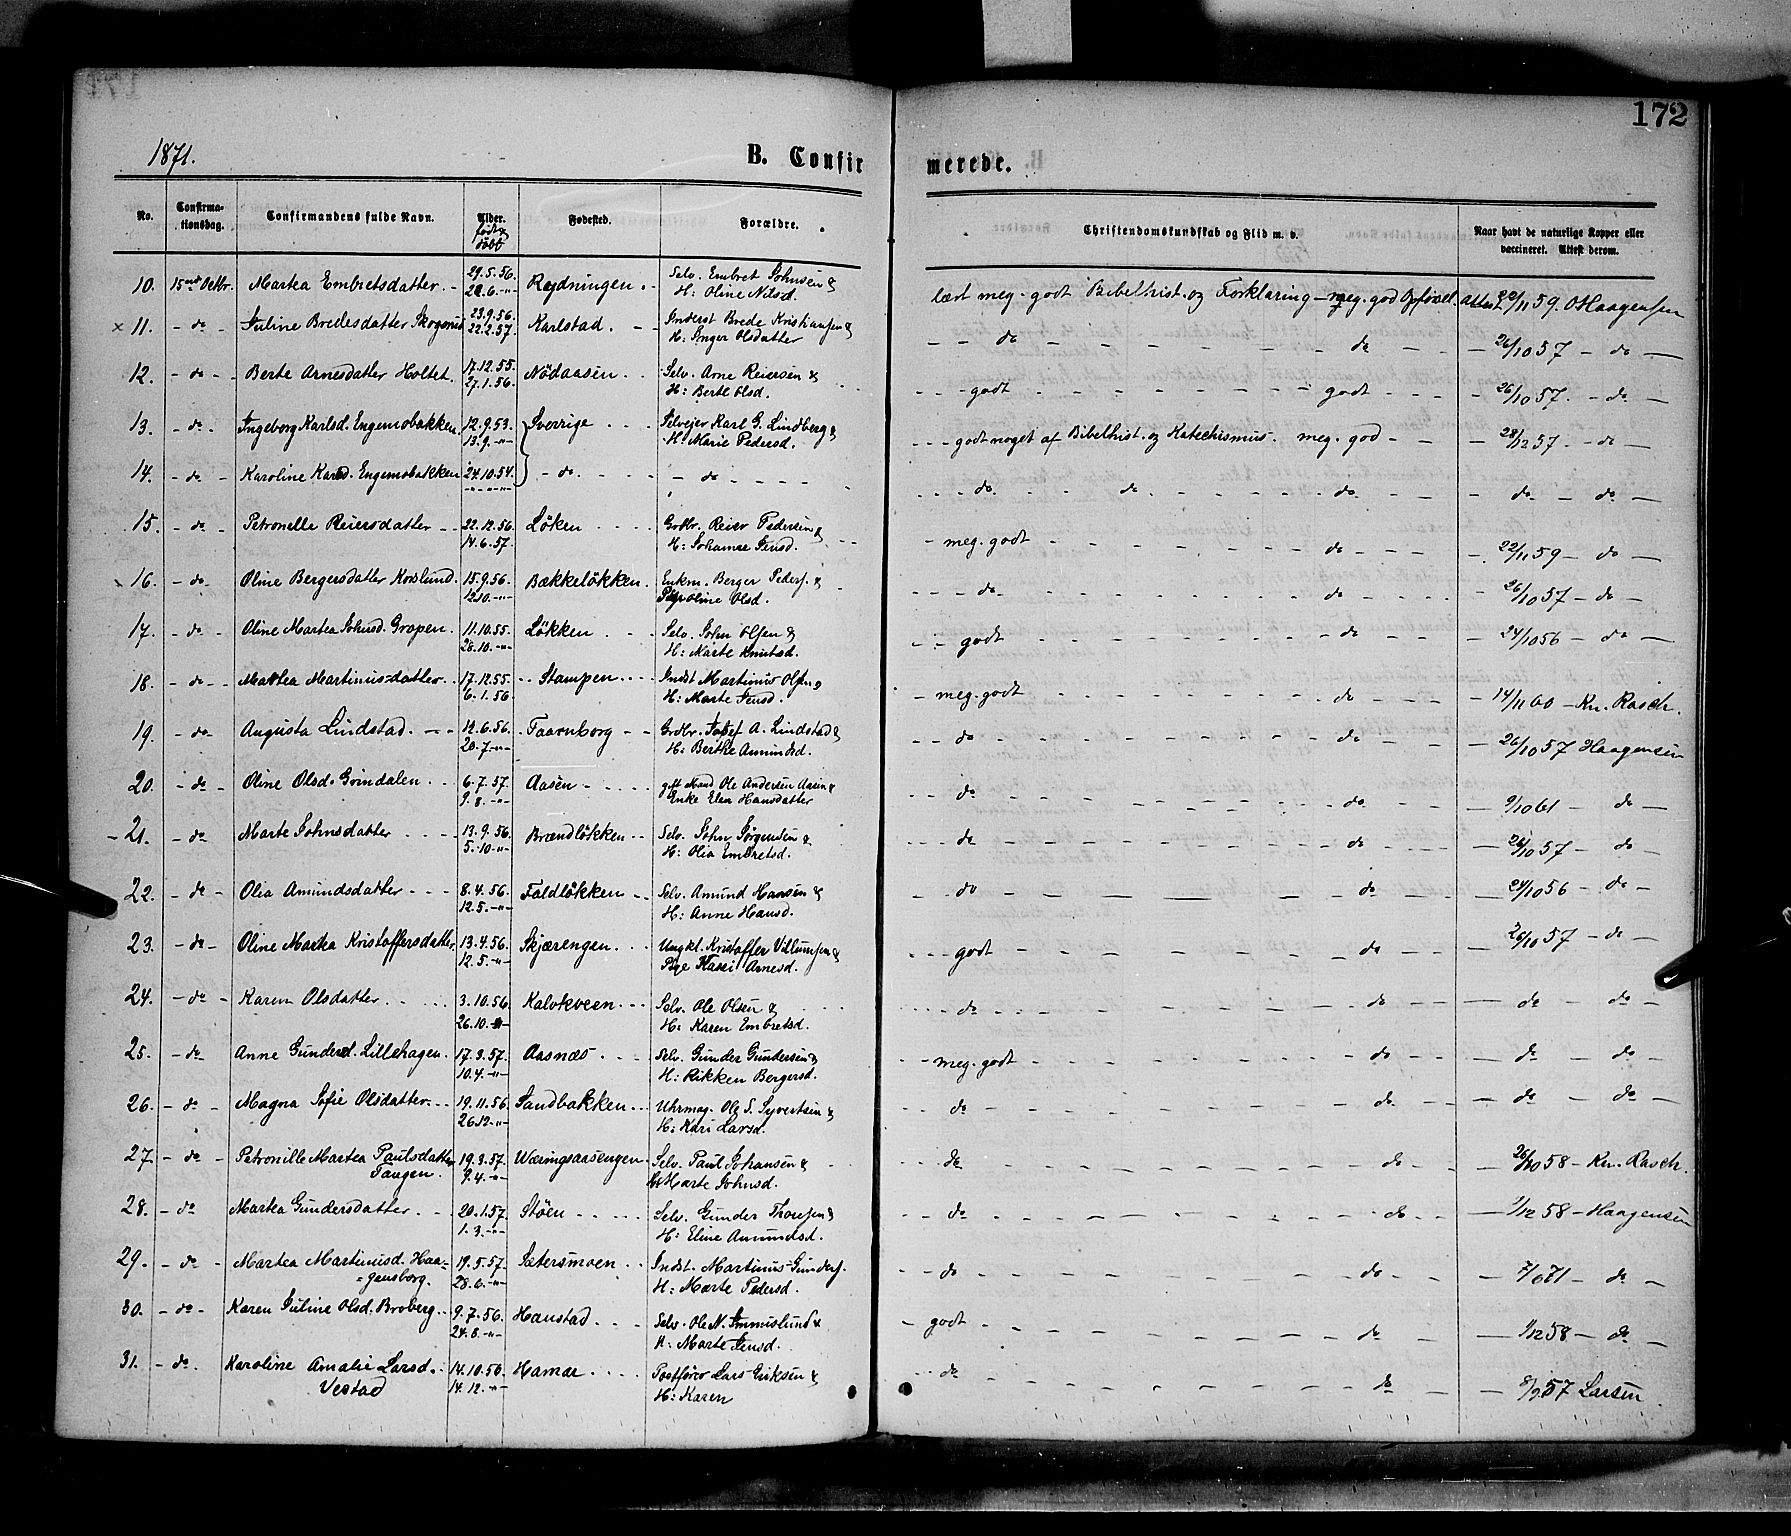 172
1871.
B. Confirmerede.
No. Confirmationsdag. Confirmandens fulde Navn. Alder. født & døbt Fødested. Forældre. Christendomskundskab og Flid m. v. Naar havt de naturlige Kopper eller vaccineret. Attest derom.
10. 15 Octbr. Martea Embretsdatter. 29.5.56. Rydningen. Selv. Embret Johnsen & lært meg. godt Bibelhist. og Forklaring - meg. god Opførsel. Attest 22/11 59. O Haagensen
H: Oline Nilsd.
× 11. - do - Juline Bredesdatter Skogenus 23.9.56. 22.2.57. Karlstad. Inderst Brede Kristiansen & do do 26/10 57 - do -
H: Inger Olsdatter
12. - do - Berte Arnesdatter Holtet. 17.12.55. 27.1.56. Nödaasen. Selv. Arne Reiersen & godt godt 26/10 57. - do -
H: Berte Olsd.
13. - do - Ingeborg Karlsd. Engemobakken. 12.9.53. 13.9.-"- Sverrige Selveier Karl G. Lindberg & godt noget af Bibelhist. og Katechismus. meg. god 28/12 57 - do -
H: Marie Pedersd.
14. - do - Karoline Karlsd. Engemobakken 24.10.54. - do - - do - do do do do do
15. - do - Petronelle Reiersdatter 22.12.56. 14.6.57. Löken Grdbr. Reier Pedersen & meg. godt do 22/11 59 - do -
H: Johanne Jensd.
16. - do - Oline Bergersdatter Korslund. 15.9.56. 12.10.-"- Bækkelökken. Enkm. Berger Peders. & do do 26/10 57 - do -
Pige Oline Olsd.
17. - do - Oline Martea Johnsd. Gropen. 11.10.55. 28.10.-"- Lökken Selv. John Olsen & godt do 24/10 56 - do -
H: Marte Knutsd.
18. - do - Martea Martinusdatter. 17.12.55. 6.1.56. Stampen. Indst Martinus Olsen & meg. godt do 14/11 60 - Kn. Rasch.
H: Marte Jensd.
19. - do - Augusta Lindstad. 12.6.56. 20.7-"- Taarnborg Grdbr. Josef A. Lindstad & do do 26/10 57 Haagensen
H: Berthe Amundsd.
20. - do Oline Olsd. Grindalen 6.7.57. 9.8.-"- Aasen gift Mand Ole Andersen Aasen & do do 9/10 61 - do -
Enke Elen Hansdatter
21. - do Marte Johnsdatter 13.9.56. 5.10-"- Brændlökken Selv. John Jørgensen & do do 26/10 57 - do -
H: Olia Embretsd.
22. - do Olia Amundsdatter 8.4.56. 12.5.-"- Faldlökken Selv. Amund Hansen & do do 24/10 56 - do -
H: Anne Hansd.
23. - do - Oline Martea Kristoffersdatter 13.4.56. 12.5.-"- Skjærengen. Ungkl. Kristoffer Villumsen & godt do 26/10 57 - do -
Pige Kari Arnesd.
24. - do - Karen Olsdatter 3.10.56. 26.10. Kalvkveen Selv. Ole Olsen & do do do do
H: Karen Embretsd.
25. - do Anne Gundersd. Lillehagen. 17.3.57. 10.4.-"- Aasnæs. Selv. Gunder Gundersen & meg. godt do do do
H: Rikken Bergersd.
26. - do - Magna Sofie Olsdatter. 19.11.56. 26.12-"- Sandbakken Uhrmag. Ole S. Syvertsen & do do do do
H: Kari Larsd.
27. - do - Petronille Martea Paulsdatter 19.3.57. 9.4.-"- Wæringsaasengen. Selv. Paul Johansen & do do 26/10 58 - Kn. Rasch.
Tangen. H: Marte Johnsd.
28. - do Martea Gundersdatter. 20.1.57. 1.3.-"- Stöen Selv. Gunder Thoresen & do do 1/12 58 - Haagensen
H: Eline Amundsd.
29. - do - Martea Martinusd. Haa= 19.5.57. 28.6.-"- Sætersmoen Indst. Martinus Gunders. do do 7/6 71 - do -
=gensborg. H: Marte Pedersd.
30. - do - Karen Juline Olsd. Broberg. 9.7.56. 24.8.-"- Hanstad. Selv. Ole N. Immislund & godt do 1/12 58 - do -
H: Marte Jensd.
31. - do. Karoline Amalie Larsd. 14.10.56. 14.12.-"- Hamar Postfører Lars Eriksen & do do 8/9 57 Larsen
Vestad H: Karen